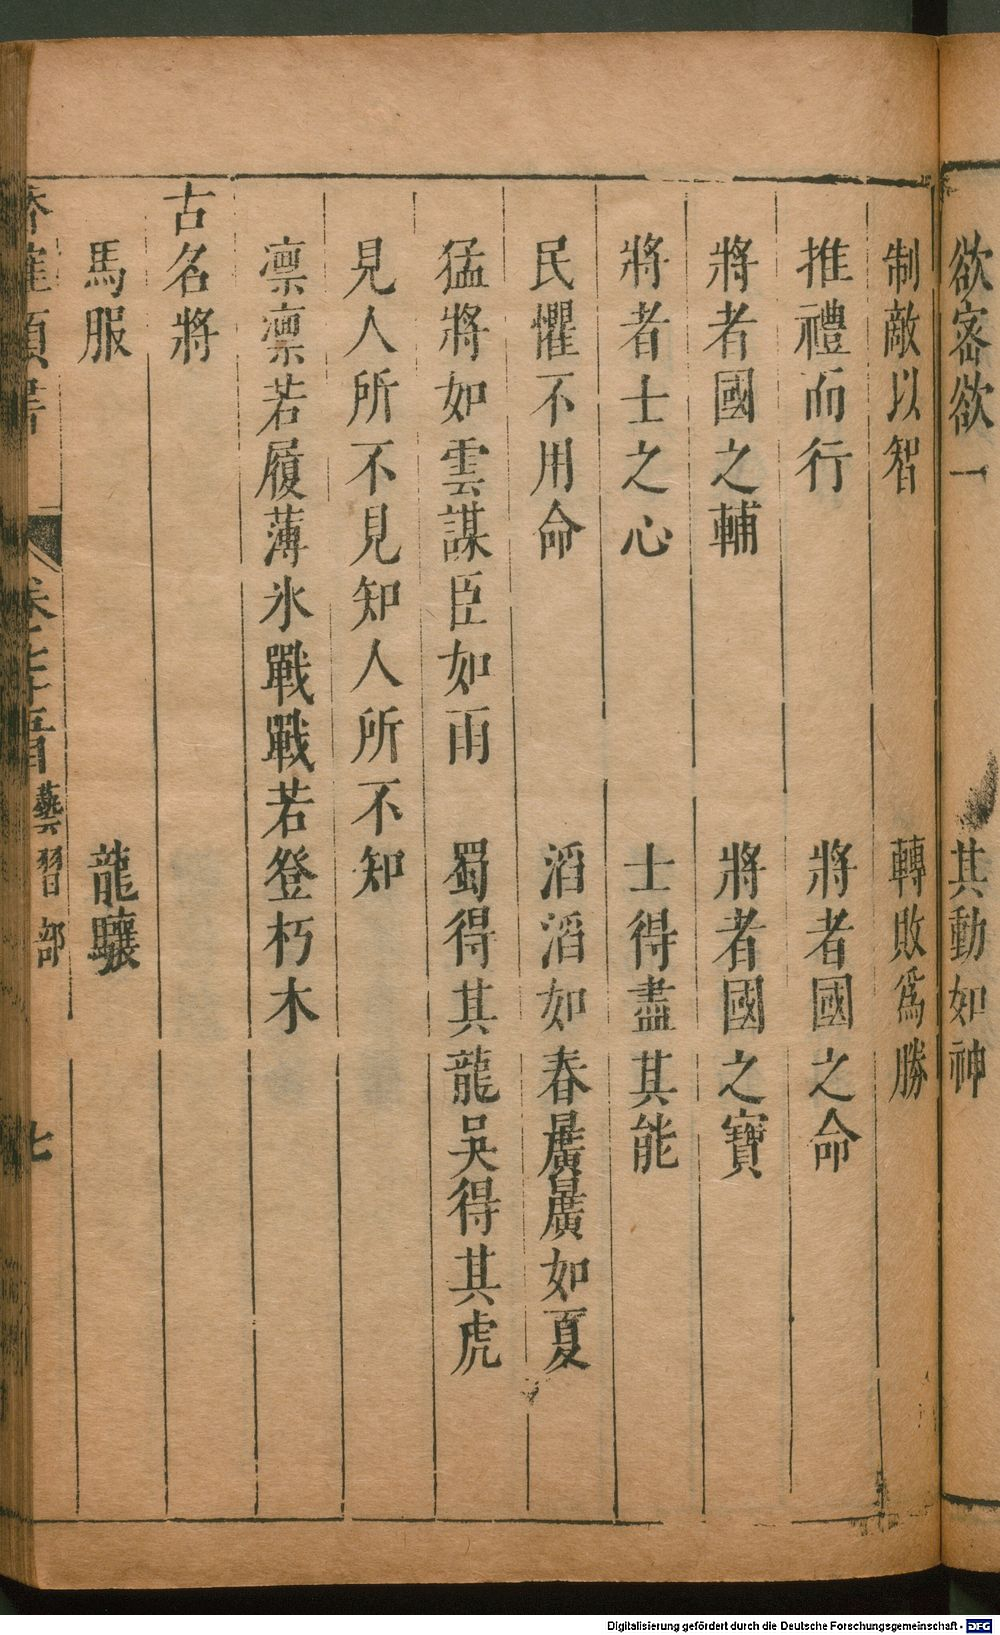 欲密欲一　其動如神
制敵以智　轉敗爲勝
推禮而行　將者國之命
將者國之輔　將者國之寶
將者士之心　士得盡其能
民懼不用命　滔滔如春曠曠如夏
猛將如雲謀臣如雨　蜀得其龍吳得其虎
見人所不見知人所不知
凛凛若履薄氷戰戰若登朽木
古名將
馬服　龍驤
藝習部
七
Digitalisierung gefördert durch die Deutsche Forschungsgemeinschaft - DFG